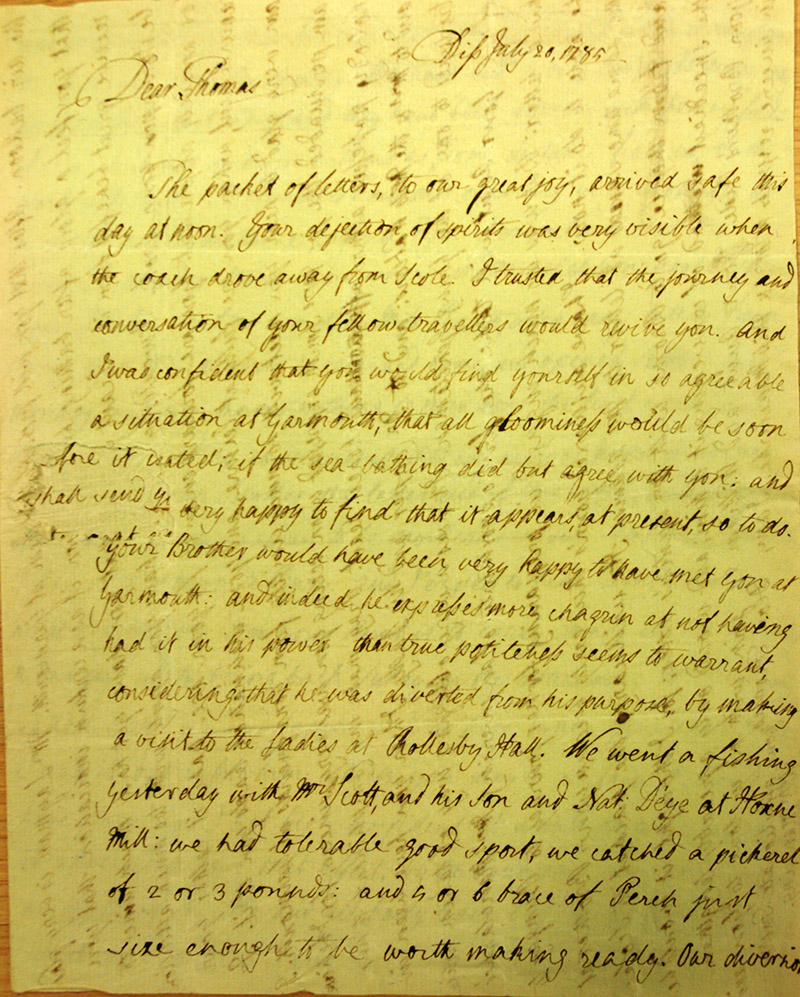 Diss July 20, 1785
Dear Thomas
The packet of letters, to our great joy, arrived safe this
day at noon. Your dejection of spirits was very visible when
the coach drove away from Scole. I trusted that the journey and
conversation of your fellow travellers would revive you. And
I was confident that you would find yourself in so agreeable
a situation at Yarmouth, that all gloominess would be soon
fore it isated; if the sea-bathing did but agree with you: and
shall send y very happy to find that it appears, at present, so to do.
Your Brother would have been very happy to have met you at
Yarmouth: and indeed he expresses more chagrin at not having
had it in his power than true politeness seems to warrant,
considering that he was diverted from his purpose, by making
a visit to the Ladies at Rollesby Hall. We went a fishing
yesterday with Mr Scott, and his Son and Nat: D'eye at Hoxne
Mill: we had tolerable good sport, we catched a pickerel
of 2 or 3 pounds: and 5 or 6 brace of Perch just
size enough to be worth making ready. Our diversion